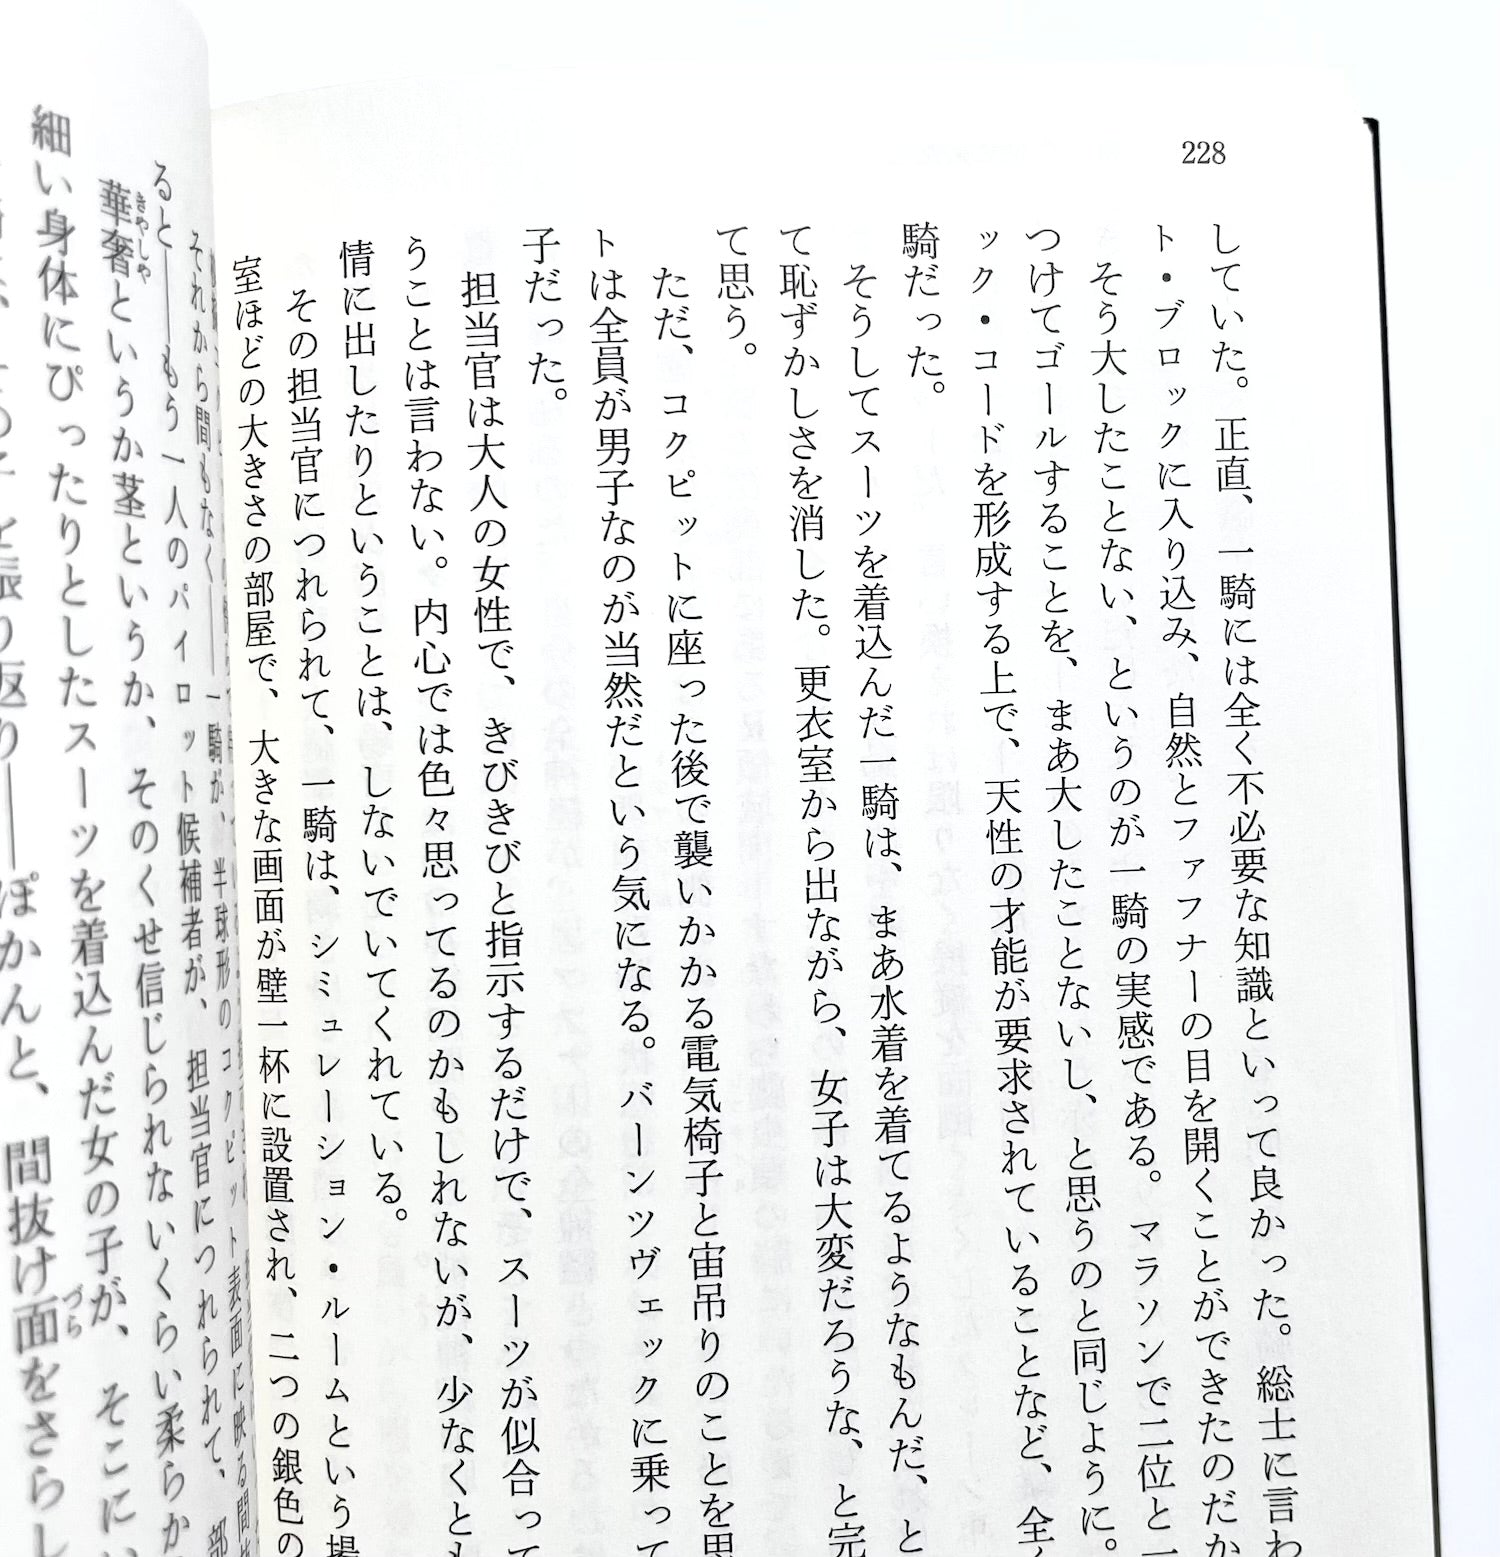 228
していた。正直、一騎には全く不必要な知識といって良かった。総士に言わ
ト・ブロックに入り込み、自然とファフナーの目を開くことができたのだか
そう大したことない、というのが一騎の実感である。マラソンで二位と一
つけてゴールすることを、まあ大したことないし、と思うのと同じように。
ック・コードを形成する上で、天性の才能が要求されていることなど、全く
騎だった。
そうしてスーツを着込んだ一騎は、まあ水着を着てるようなもんだ、と
て恥ずかしさを消した。更衣室から出ながら、女子は大変だろうな、と完
て思う。
ただ、コクピットに座った後で襲いかかる電気椅子と宙吊りのことを思
トは全員が男子なのが当然だという気になる。バーンツヴェックに乗って
子だった。
担当官は大人の女性で、きびきびと指示するだけで、スーツが似合って
うことは言わない。内心では色々思ってるのかもしれないが、少なくとも
情に出したりということは、しないでいてくれている。
その担当官につれられて、一騎は、シミュレーション・ルームという場
室ほどの大きさの部屋で、大きな画面が壁一杯に設置され、二つの銀色の
それから間もなく――一騎が、半球形のコクピット表面に映る間抜
ると――もう一人のパイロット候補者が、担当官につれられて、部
華奢というか茎というか、そのくせ信じられないくらい柔らか
きやしや
細い身体にぴったりとしたスーツを着込んだ女の子が、そこにい
振り返り――ぽかんと、間抜け面をさらし
づら